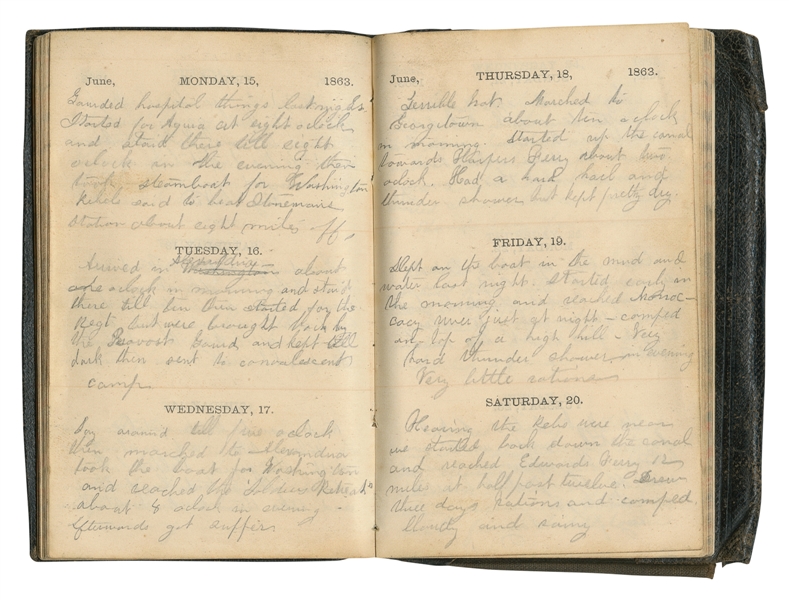 June, MONDAY, 15, 1863.
Guarded hospital things last night
Started for Aquia at eight oclock
and staid there till eight
oclock in the evening then
took steamboat for Washington
Rebels said to be at
station about eight miles off,
TUESDAY, 16.
Arrived in Washington about
one oclock in morning and staid
there till ten then started for the
Regt but were brought back by
the Provost Guard and kept till
dark then sent to convalescent
camp
WEDNESDAY, 17.
Lay around till five oclock
then marched to Alexandria
took the boat for Washington
and reached the Soldiers Retreat
about 8 oclock in evening -
Afterwards got supper
June, THURSDAY, 18, 1863.
Terrible hot. Marched to
Georgetown about ten oclock
in morning. Started up the canal
towards Harpers Ferry about two
oclock. Had a hard hail and
thunder shower but kept pretty dry.
FRIDAY, 19.
Slept on the boat in the mud and
water last night. Started early in
the morning and reached Monoc-
cacy river just at night - camped
on top of a high hill - Very
hard thunder shower in evening
Very little rations
SATURDAY, 20.
Hearing the Rebs were near
we started back down the canal
and reached Edwards Ferry 12
miles at half past twelve. Drew
three days rations and camped.
Cloudy and rainy